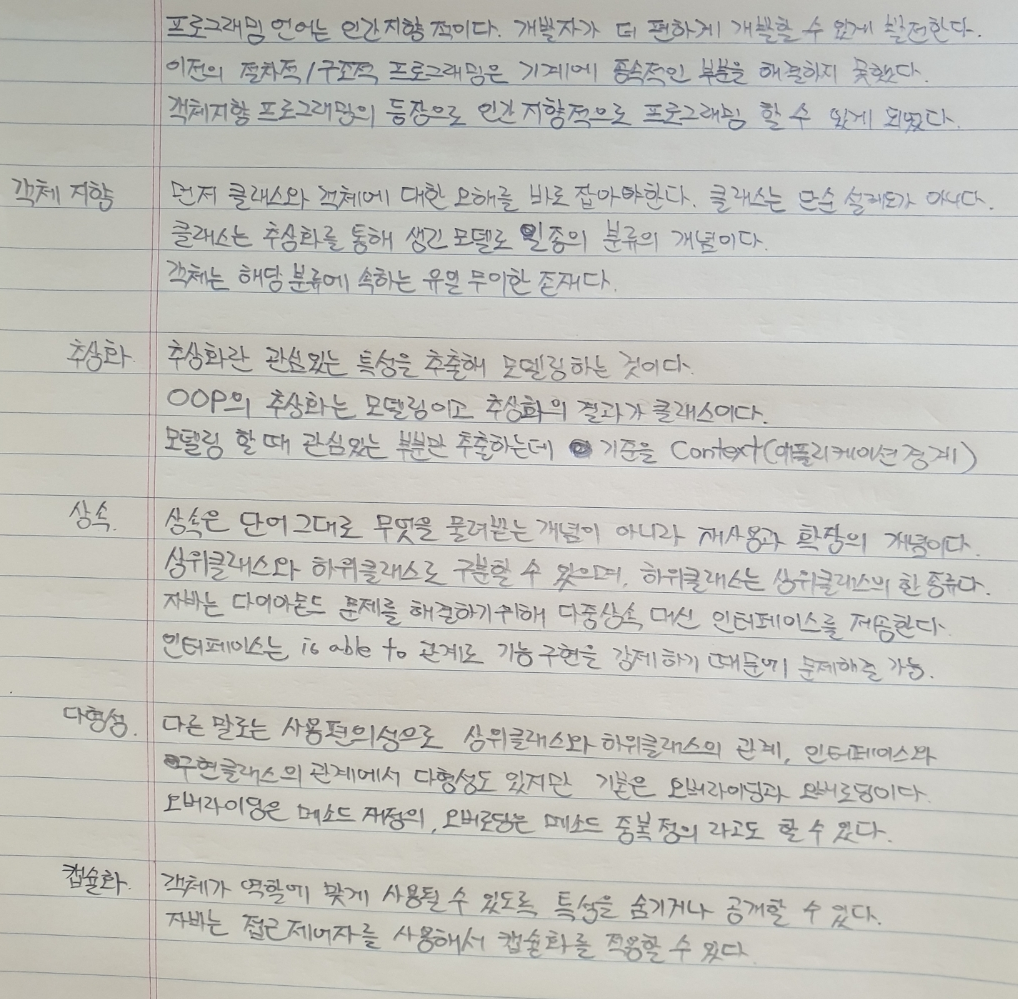 프로그래밍 언어는 인간지향적이다. 개발자가 더 편하게 개발할 수 있게 발전한다.
이전의 절차적/구조적 프로그래밍은 기계에 종속적인 부분을 해결하지 못했다.
객체지향 프로그래밍의 등장으로 인간지향적으로 프로그래밍 할 수 있게 되었다.
객체 지향 먼저 클래스와 객체에 대한 오해를 바로 잡아야한다. 클래스는 단순 설계도가 아니다.
클래스는 추상화를 통해 생긴 모델로 일종의 분류의 개념이다.
객체는 해당 분류에 속하는 유일무이한 존재다.
추상화 추상화란 관심있는 특성을 추출해 모델링하는 것이다.
OOP의 추상화는 모델링이고 추상화의 결과가 클래스이다.
모델링 할 때 관심있는 부분만 추출하는데 기준을 Context(애플리케이션 경계)
상속. 상속은 단어 그대로 무엇을 물려받는 개념이 아니라 재사용과 확장의 개념이다.
상위클래스와 하위클래스로 구분할 수 있으며, 하위클래스는 상위클래스의 한 종류다.
자바는 다이아몬드 문제를 해결하기 위해 다중상속 대신 인터페이스를 제공한다.
인터페이스는 is able to 관계로 기능구현을 강제하기 때문에 문제해결 가능.
다형성. 다른 말로는 사용편의성으로 상위클래스와 하위클래스의 관계, 인터페이스와
구현클래스의 관계에서 다형성도 있지만 기본은 오버라이딩과 오버로딩이다.
오버라이딩은 메소드 재정의, 오버로딩은 메소드 중복정의 라고도 할 수 있다.
캡슐화. 객체가 역할에 맞게 사용될 수 있도록 특성을 숨기거나 공개할 수 있다.
자바는 접근제어자를 사용해서 캡슐화를 적용할 수 있다.